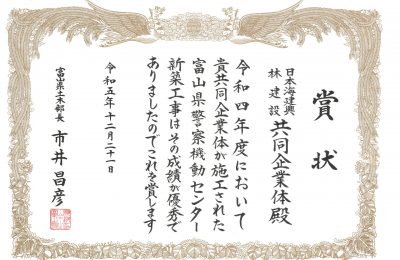 賞状
日本海建興
林建設
共同企業体殿
令和四年度において
貴共同企業体が施工された
富山県警察機動センター
新築工事はその成績が優秀で
ありましたのでこれを賞します
令和五年十二月二十一日
富山県土木部長 市井昌彦